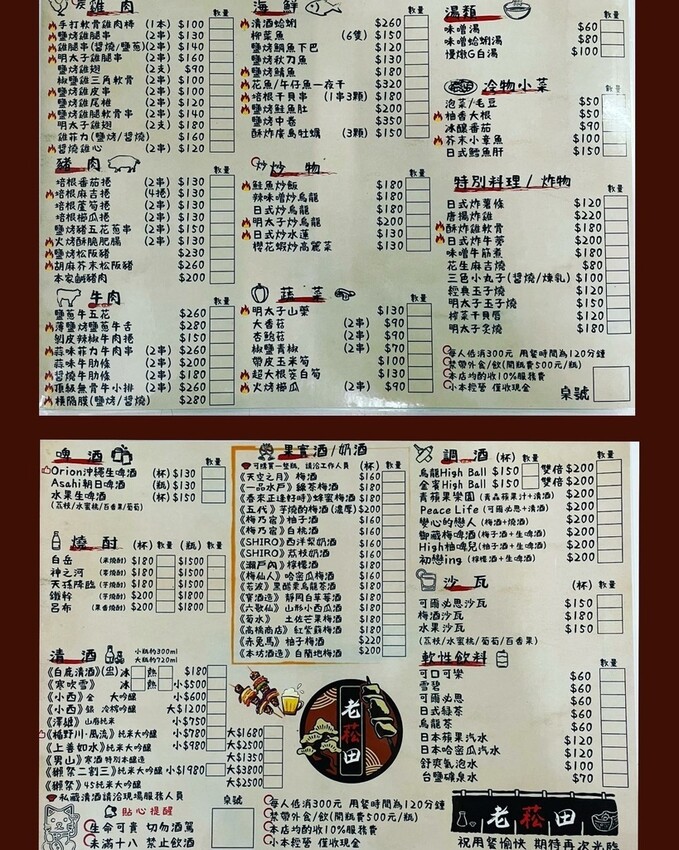 炭雞肉
數量
手打軟骨雞肉棒 (1本) $100
鹽烤雞腿串 (2串) $130
雞腿串(醬燒/鹽蔥) (2串) $140
明太子雞腿串 (2串) $160
鹽烤雞翅 (2支) $90
椒鹽雞三角軟骨 (2串) $100
鹽烤雞皮串 (2串) $100
鹽烤雞尾椎 (2串) $120
鹽烤雞腿軟骨串 (2串) $140
明太子雞翅 (2支) $180
雞菲力(鹽烤/醬燒) $160
醬燒雞心 (2串) $120
豬肉
數量
培根番茄捲 (2串) $130
培根麻吉捲 (4捲) $130
培根蘆筍捲 (2串) $130
培根櫛瓜捲 (2串) $130
鹽烤豬五花蔥串 (2串) $130
火烤酥脆肥腸 (2串) $130
鹽烤松阪豬 $230
胡麻芥末松阪豬 $260
本家鹹豬肉 $200
牛肉
數量
鹽蔥牛五花 $260
薄鹽烤鹽蔥牛舌 $280
剝皮辣椒牛肉捲 $150
蒜味菲力牛肉串 (2串) $260
蒜味牛肋條 (2串) $180
醬燒牛肋條 (2串) $180
頂級無骨牛小排 (2串) $260
橫隔膜(鹽烤/醬燒) $280
海鮮
數量
清酒蛤蜊 $260
柳葉魚 (6隻) $150
鹽烤鯛魚下巴 $120
鹽烤秋刀魚 $130
鹽烤鯖魚 $180
花魚/午仔魚一夜干 $320
培根干貝串 (1串3顆) $180
鹽烤鮭魚肚 $200
鹽烤中卷 $350
酥炸廣島牡蠣 (3顆) $150
炒炒物
數量
鮭魚炒飯 $180
辣味噌炒烏龍 $180
日式炒烏龍 $180
明太子炒烏龍 $200
日式炒水蓮 $130
櫻花蝦炒高麗菜 $130
蔬菜
數量
明太子山藥 $130
大香菇 (2串) $90
杏鮑菇 (2串) $90
椒鹽青椒 (2串) $70
帶皮玉米筍 $100
超大根茭白筍 $130
火烤櫛瓜 (2串) $90
湯類
數量
味噌湯 $60
味噌蛤蜊湯 $80
慢燉G白湯 $100
冷物小菜
數量
泡菜/毛豆 $50
柚香大根 $50
冰釀番茄 $90
芥末小章魚 $100
日式鱈魚肝 $150
特別料理/炸物
數量
日式炸薯條 $120
唐揚炸雞 $220
酥炸雞軟骨 $180
日式炸牛蒡 $200
味噌牛筋煮 $180
花生麻吉燒 $80
三色小丸子(醬燒/煉乳) $100
經典玉子燒 $120
明太子玉子燒 $150
榨菜干貝唇 $120
明太子炙燒 $180
每人低消300元 用餐時間為120分鐘
禁帶外食/飲(開瓶費500元/瓶)
本店均酌收10%服務費
小本經營 僅收現金
桌號
啤酒
數量
Orion沖繩生啤酒 (杯) $130
Asahi朝日啤酒 (瓶) $130
水果生啤酒 (杯) $150
(荔枝/水蜜桃/百香果/葡萄)
燒酎 (杯) 數量 (瓶) 數量
白岳 (米燒酎) $180 $1500
神之河 (麥燒酎) $180 $1500
天孫降臨 (芋燒酎) $180 $1500
鐵幹 (芋燒酎) $200 $1800
呂布 (果香燒酎) $200 $1800
清酒
小瓶約300ml
大瓶約720ml
數量
《白鹿清酒》(盅) 冰 熱 $180
《寒吹雪》 冰 熱 小$500
《小西》金 大吟釀 小$600
《小西》銀 冷榨吟釀 大$1200
《澤雄》山廢純米 小$750
《楯野川·風流》純米大吟釀 小$780 大$1680
《上善如水》純米大吟釀 小$980 大$2500
《男山》寒酒 特別本釀造 大$1350
《獺祭二割三》純米大吟釀 小$1980 大$3800
《獺祭》45純米大吟釀 大$2500
私藏清酒請洽現場服務人員
貼心提醒
生命可貴 切勿酒駕
未滿十八 禁止飲酒
桌號
果實酒/奶酒
可購買一整瓶，請洽工作人員 (杯) 數量
《天空之月》梅酒 $160
《一品水戶》綠茶梅酒 $180
《春來正逢好時》蜂蜜梅酒 $180
《五代》芋燒酌梅酒(濃厚) $200
《梅乃宿》柚子酒 $160
《梅乃宿》白桃酒 $160
《SHIRO》西洋梨奶酒 $160
《SHIRO》荔枝奶酒 $160
《瀨戶內》檸檬酒 $180
《梅仙人》哈密瓜梅酒 $160
《若波》黑醋栗烏龍茶酒 $180
《寶酒造》靜岡白草莓酒 $180
《六歌仙》山形小西瓜酒 $180
《菊水》土佐芒果梅酒 $180
《高橋商店》紅紫蘇梅酒 $180
《赤兔馬》柚子梅酒 $220
《本坊酒造》白蘭地梅酒 $200
老菘田
每人低消300元 用餐時間為120分鐘
禁帶外食/飲(開瓶費500元/瓶)
本店均酌收10%服務費
小本經營 僅收現金
調酒 (杯) 數量 數量
烏龍High Ball $150 雙倍 $200
金賓High Ball $150 雙倍 $200
青蘋果樂園 (青森蘋果汁+清酒) $200
Peace Life (可爾必思+清酒) $200
變心的戀人 (梅酒+燒酒) $200
御藏梅啤酒 (梅子酒+生啤酒) $200
High柚啤兒 (柚子酒+生啤酒) $200
初戀ing (檸檬酒+生啤酒) $200
沙瓦 (杯) 數量
可爾必思沙瓦 $150
梅酒沙瓦 $180
水果沙瓦 $150
(荔枝/水蜜桃/葡萄/百香果)
軟性飲料
數量
可口可樂 $60
雪碧 $60
可爾必思 $60
日式綠茶 $60
烏龍茶 $60
日本蘋果汽水 $120
日本哈密瓜汽水 $120
舒爽氣泡水 $100
台鹽礦泉水 $70
老菘田
祝用餐愉快 期待再次光臨